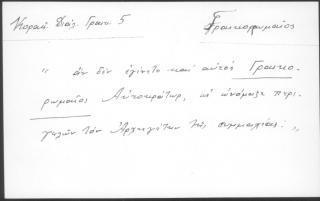 Κοραῆ Διάλ. Γραικ. 5 Γραικορωμαῖος
" ἂν δὲν ἐγίνετο καὶ αὐτὸς Γραικο-
ρωμαῖος Αὐτοκράτωρ, κ' ὠνόμαζε περι-
γελῶν τὸν Ἀρχηγέτην τῆς συμμαχίας. "